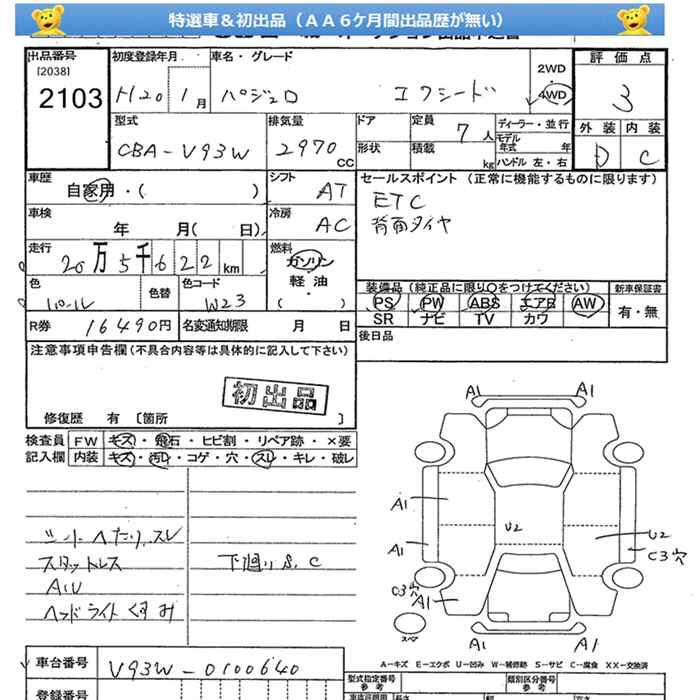 特選車＆初出品（ＡＡ６ケ月間出品歴が無い）
出品番号 初度登録年月 車名・グレード 評価点
[2038] 2WD
2103 H20 1月 パジェロ エクシード 4WD 3
型式 排気量 ドア 定員 7人 ディーラー・並行 外装 内装
CBA-V93W 2970CC 形状 積載 kg モデル年式 年 D C
ハンドル 左・右
車歴 シフト セールスポイント（正常に機能するものに限ります）
自家用・（ ） AT ETC
車検 冷房 背面タイヤ
年 月（ 日） AC
走行 燃料
20万5千622km ガソリン・軽油・（ ）
色 色替 色コード 装備品（純正品に限り○をつけてください） 新車保証書
パール W23 PS PW ABS エアB AW 有・無
SR ナビ TV カワ
R券 16490円 名変通知期限 月 日 後日品
注意事項申告欄（不具合内容等は具体的に記入して下さい）
初出品
修復歴 有〔箇所 〕
検査員 FW キズ・飛石・ヒビ割・リペア跡・×要
記入欄 内装 キズ・汚れ・コゲ・穴・スレ・キレ・破レ
シートへたり、スレ
スタットレス 下廻りS、C
A1U
ヘッドライトくすみ
A1 A1
A1
U2 U2
A1 C3穴
C3穴
A1
スペア A1 A1
A-キズ E-エクボ U-凹み W-補修跡 S-サビ C-腐食 XX-交換済
車台番号 V93W-0100640 型式指定番号 参考 類別区分番号 参考
登録番号 長さ 幅 高さ